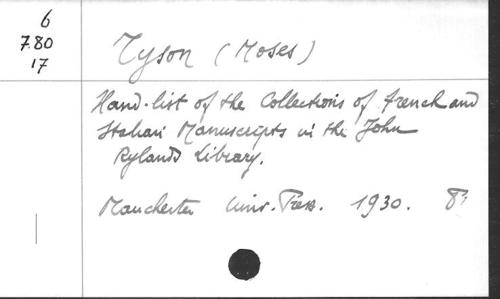 6
7.80
17
Tyson (Moses)
Hand-list of the Collections of French and
Italian Manuscripts in the John
Rylands Library.
Manchester Univ. Press. 1930. 8º